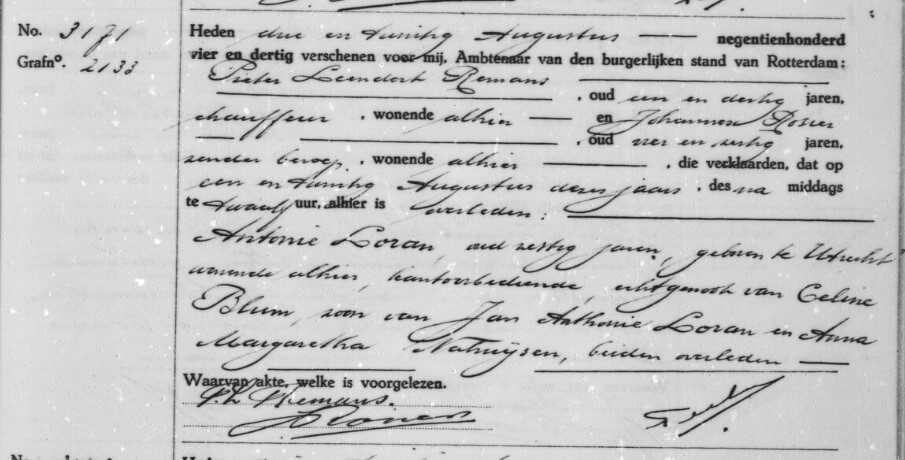 No. 3171
Grafno. 2133
Heden drie en twintig Augustus negentienhonderd
vier en dertig verschenen voor mij, Ambtenaar van den burgerlijken stand van Rotterdam:
Pieter Leendert Remans
, oud een en dertig jaren,
chauffeur , wonende alhier en Johannes Rosier
, oud vier en zestig jaren,
zonder beroep , wonende alhier , die verklaarden, dat op
een en twintig Augustus dezes jaars , des na middags
te twaalf uur, alhier is overleden:
Antonie Loran, oud zestig jaren, geboren te Utrecht
wonende alhier, kantoorbediende, echtgenoot van Celine
Blum, zoon van Jan Anthonie Loran en Anna
Margaretha Nathuijsen, beiden overleden
Waarvan akte, welke is voorgelezen.
P. L. Remans.